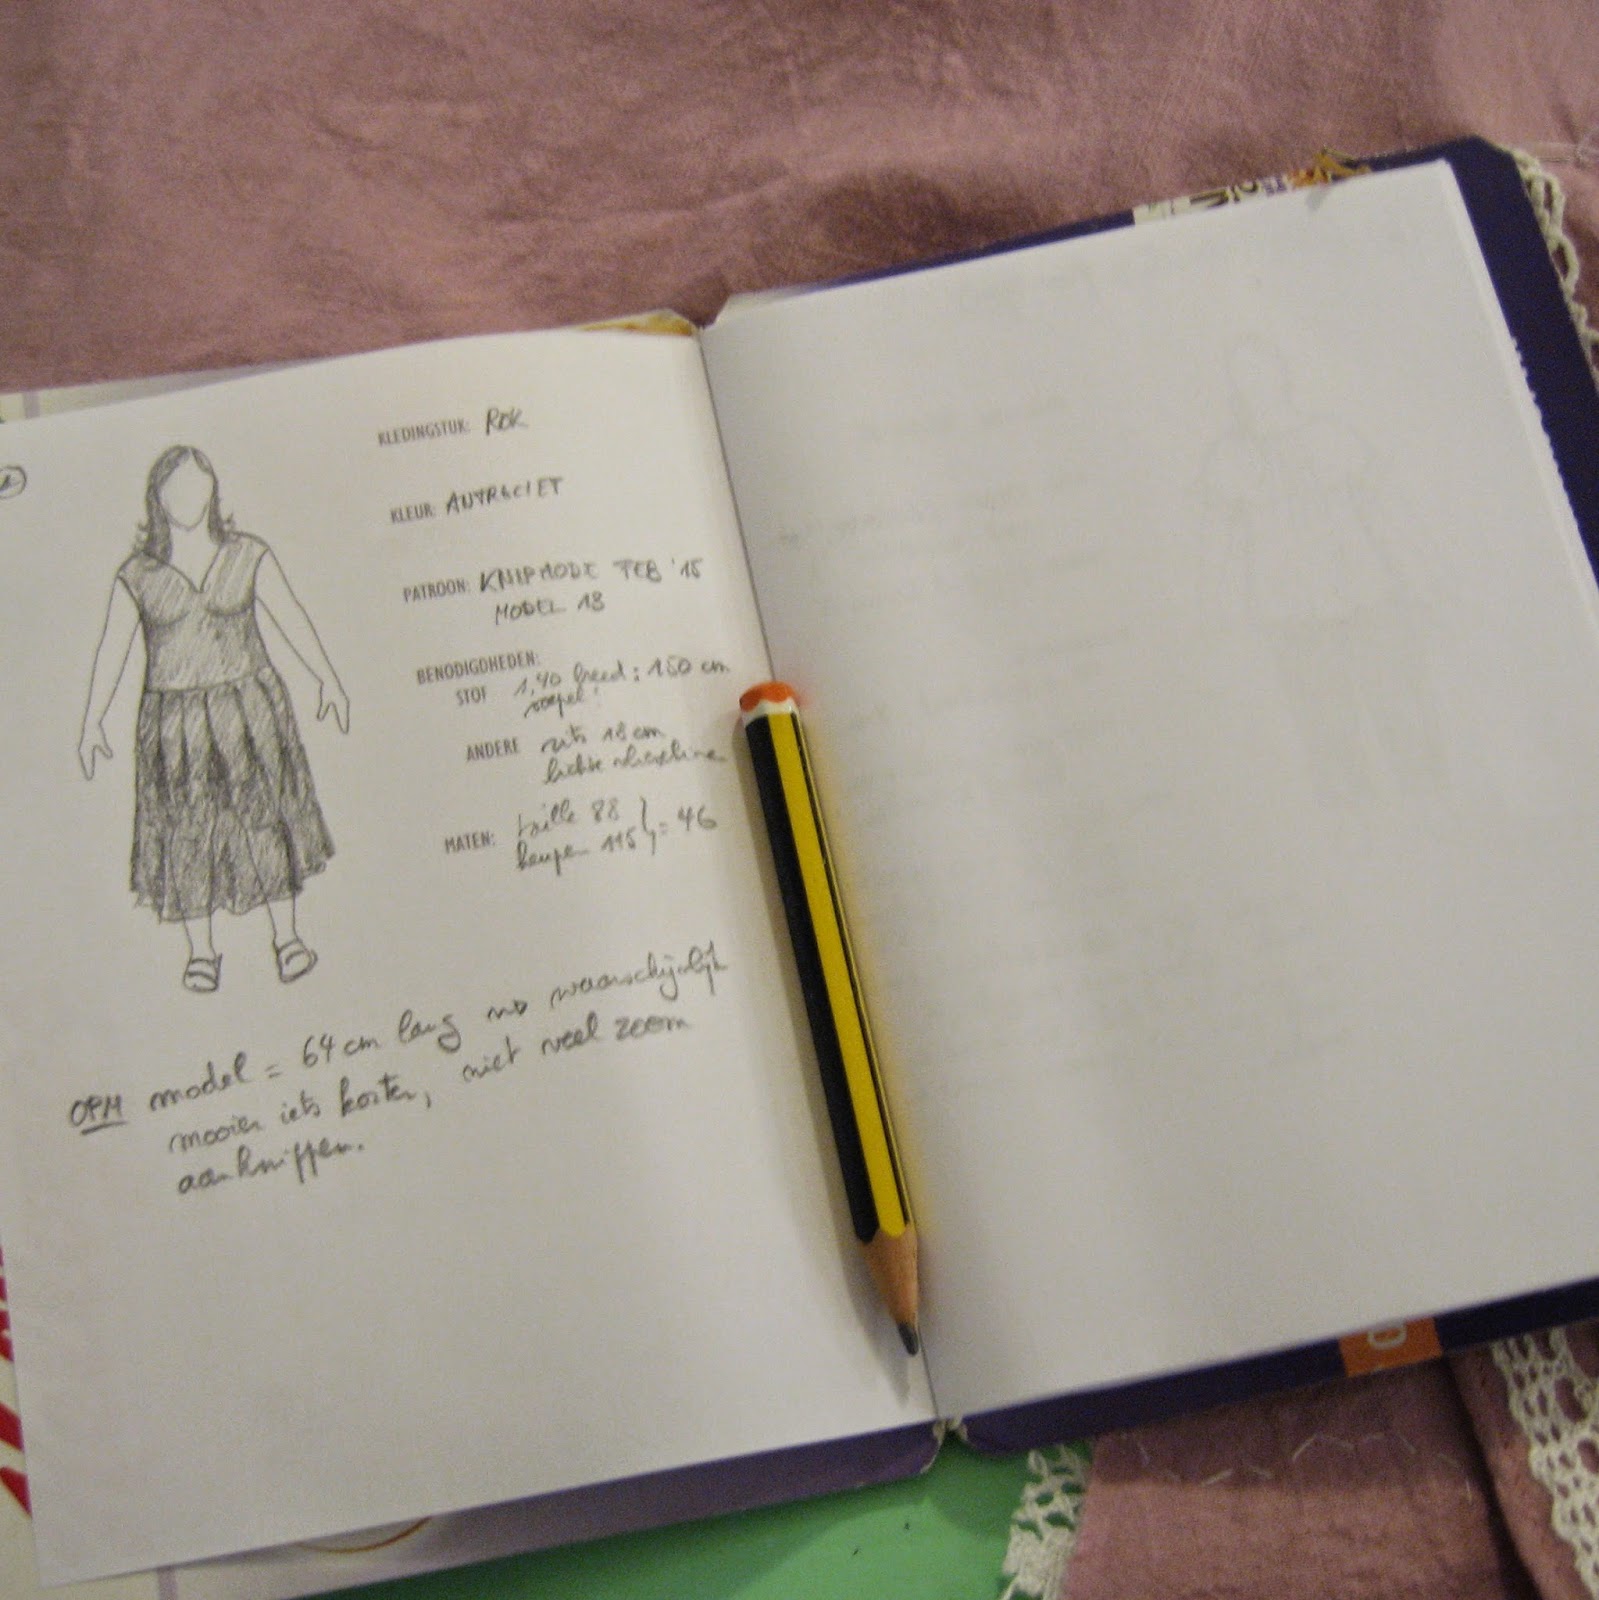 KLEDINGSTUK: ROK
KLEUR: ANTRACIET
PATROON: KNIPMODE FEB '15
MODEL 13
BENODIGDHEDEN:
STOF 1,40 breed: 150 cm
soepel!
ANDERE rits 18 cm
lichte vlieseline
MATEN: taille 88
heupen 115 } = 46
OPM model = 64 cm lang waarschijnlijk
mooier iets korter, niet veel zoom
aanknippen.